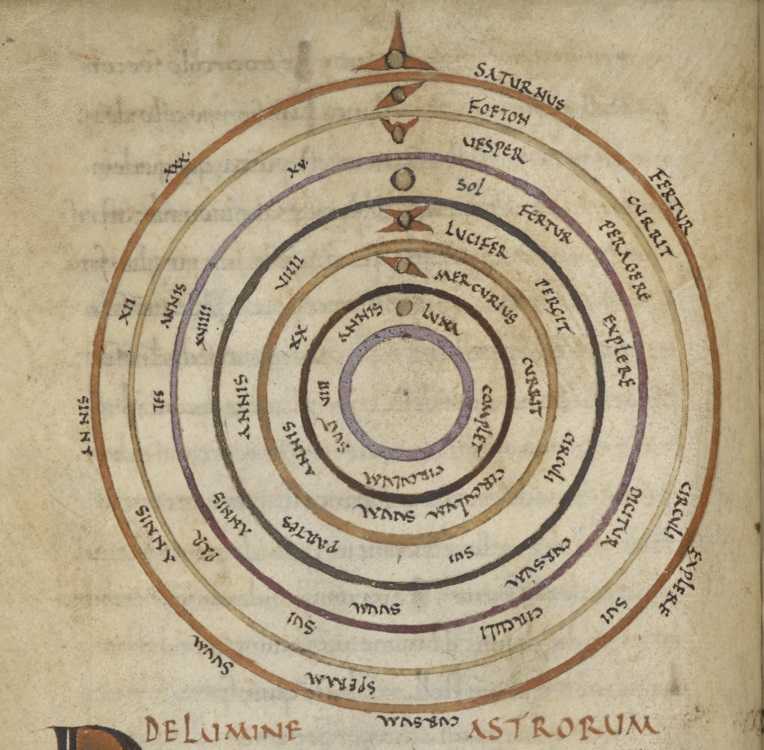 SATURNUS FERTUR EXPLERE CURSUM SUUM ANNIS XXX
FOETON CURRIT CIRCULI SUI SPERAM ANNIS XII
UESPER PERAGERE DICITUR CIRCULI SUI PAR TES ANNIS XV
SOL FERTUR EXPLERE CURSUM SUUM ANNIS
LUCIFER PERGIT CIRCULI SUI PARTES ANNIS VIIII
MERCURIUS CURRIT CIRCULUM SUUM ANNIS XX
LUNA COMPLET CIRCULUM SUUM VIII ANNIS
DE LUMINE ASTRORUM